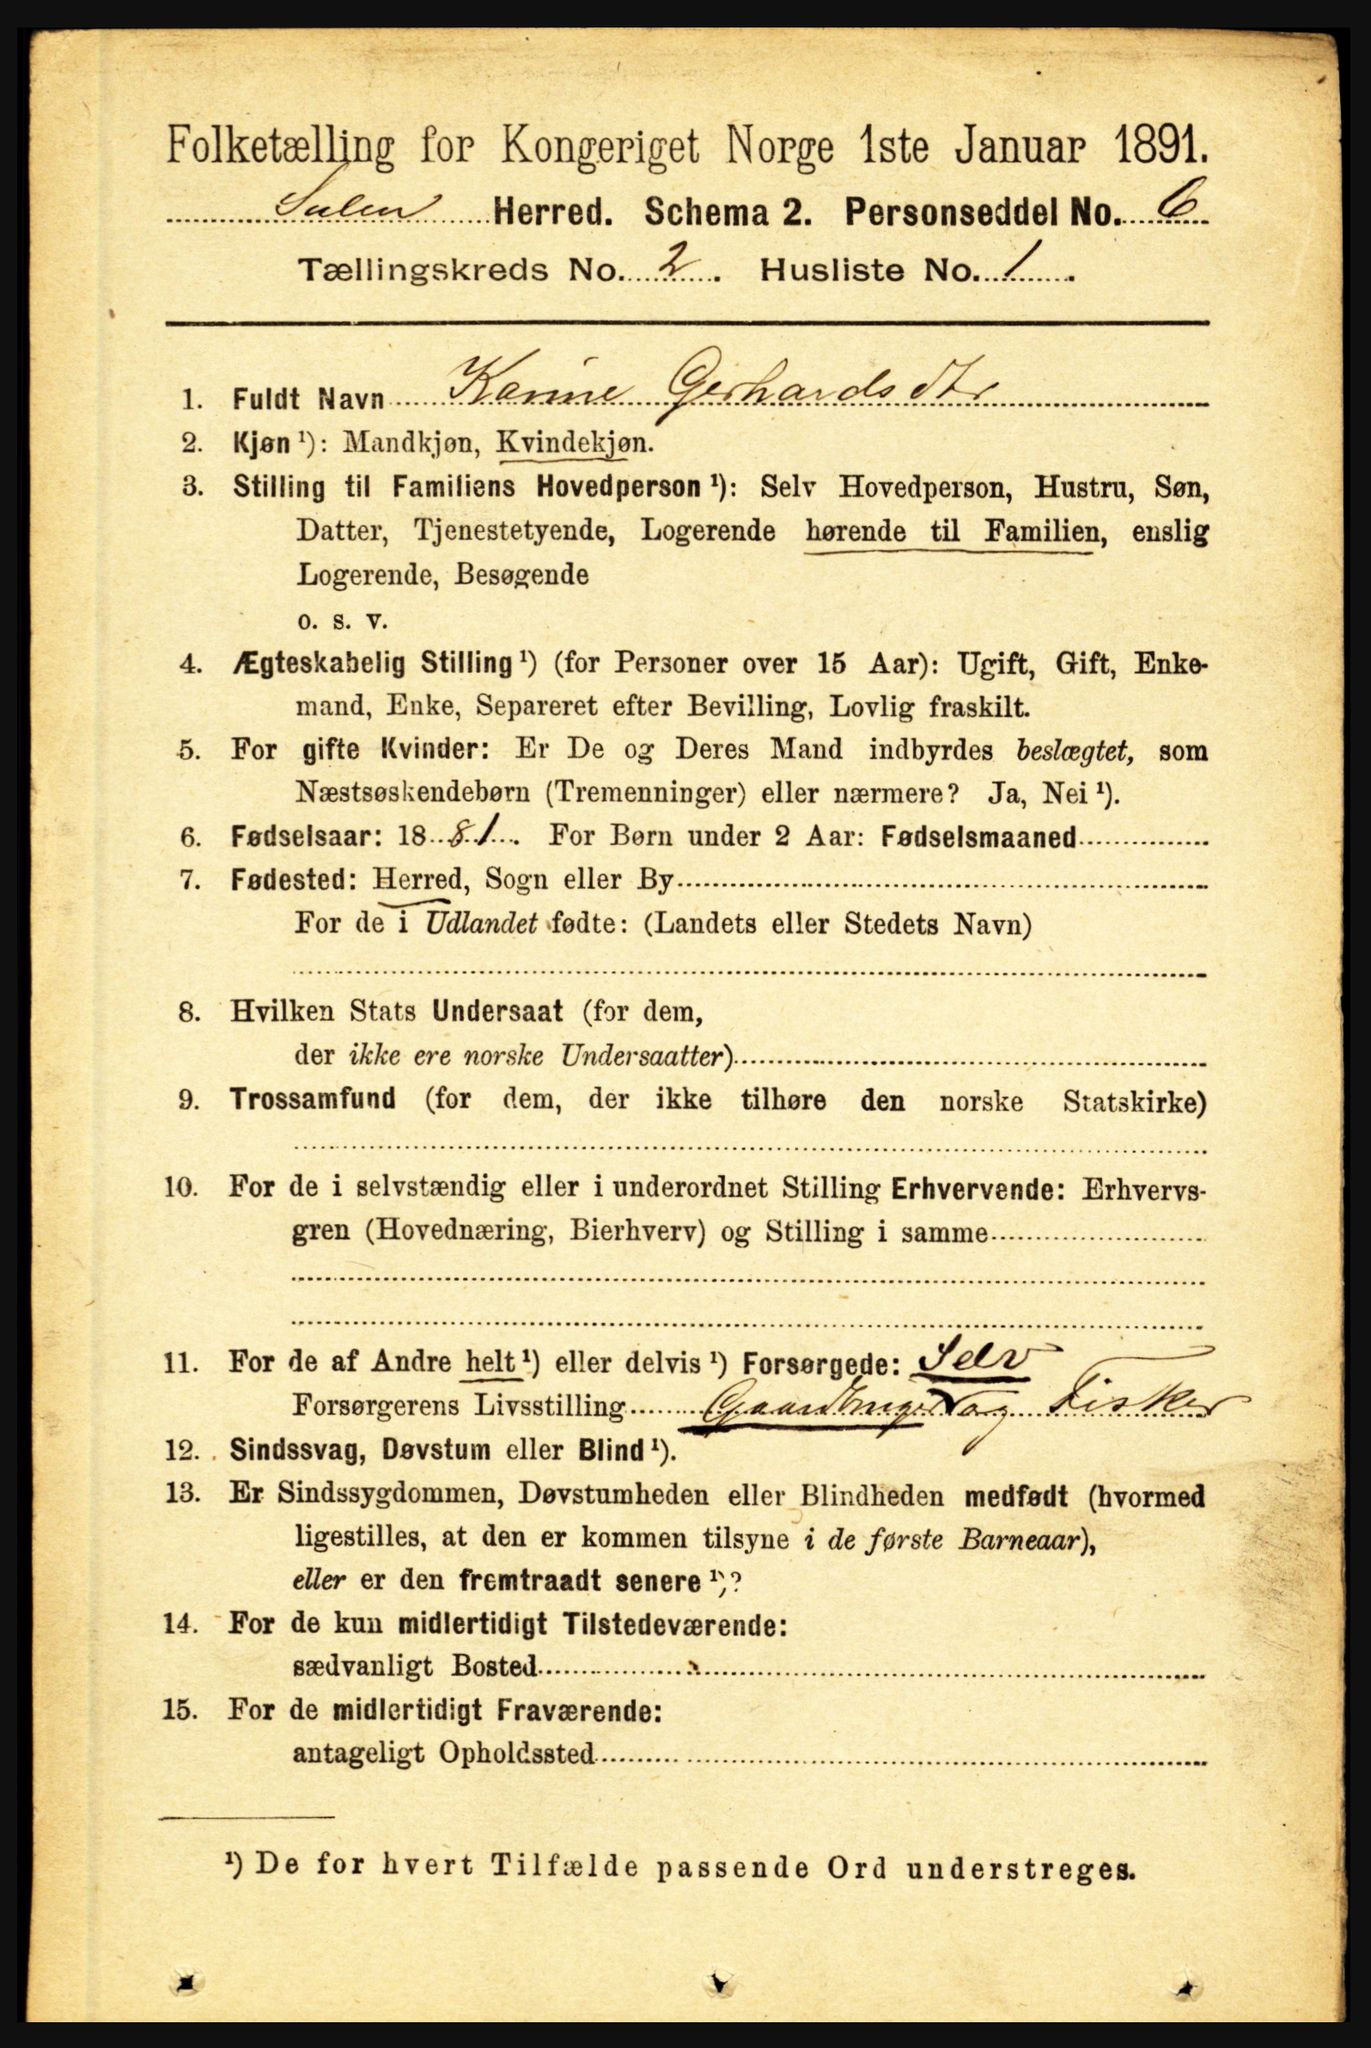 Folketælling for Kongeriget Norge 1ste Januar 1891.
Sulen Herred. Schema 2. Personseddel No. 6
Tællingskreds No. 2. Husliste No. 1.
1. Fuldt Navn Karine Gerhardsdtr
2. Kjøn ¹): Mandkjøn, Kvindekjøn.
3. Stilling til Familiens Hovedperson ¹): Selv Hovedperson, Hustru, Søn,
Datter, Tjenestetyende, Logerende hørende til Familien, enslig
Logerende, Besøgende
o. s. v.
4. Ægteskabelig Stilling ¹) (for Personer over 15 Aar): Ugift, Gift, Enke-
mand, Enke, Separeret efter Bevilling, Lovlig fraskilt.
5. For gifte Kvinder: Er De og Deres Mand indbyrdes beslægtet, som
Næstsøskendebørn (Tremenninger) eller nærmere? Ja, Nei ¹).
6. Fødselsaar: 1881. For Børn under 2 Aar: Fødselsmaaned
7. Fødested: Herred, Sogn eller By
For de i Udlandet fødte: (Landets eller Stedets Navn)
8. Hvilken Stats Undersaat (for dem,
der ikke ere norske Undersaatter)
9. Trossamfund (for dem, der ikke tilhøre den norske Statskirke)
10. For de i selvstændig eller i underordnet Stilling Erhvervende: Erhvervs-
gren (Hovednæring, Bierhverv) og Stilling i samme
11. For de af Andre helt ¹) eller delvis ¹) Forsørgede: Selv
Forsørgerens Livsstilling Gaardbruger og Fisker
12. Sindssvag, Døvstum eller Blind ¹).
13. Er Sindssygdommen, Døvstumheden eller Blindheden medfødt (hvormed
ligestilles, at den er kommen tilsyne i de første Barneaar),
eller er den fremtraadt senere ¹)?
14. For de kun midlertidigt Tilstedeværende:
sædvanligt Bosted
15. For de midlertidigt Fraværende:
antageligt Opholdssted
¹) De for hvert Tilfælde passende Ord understreges.